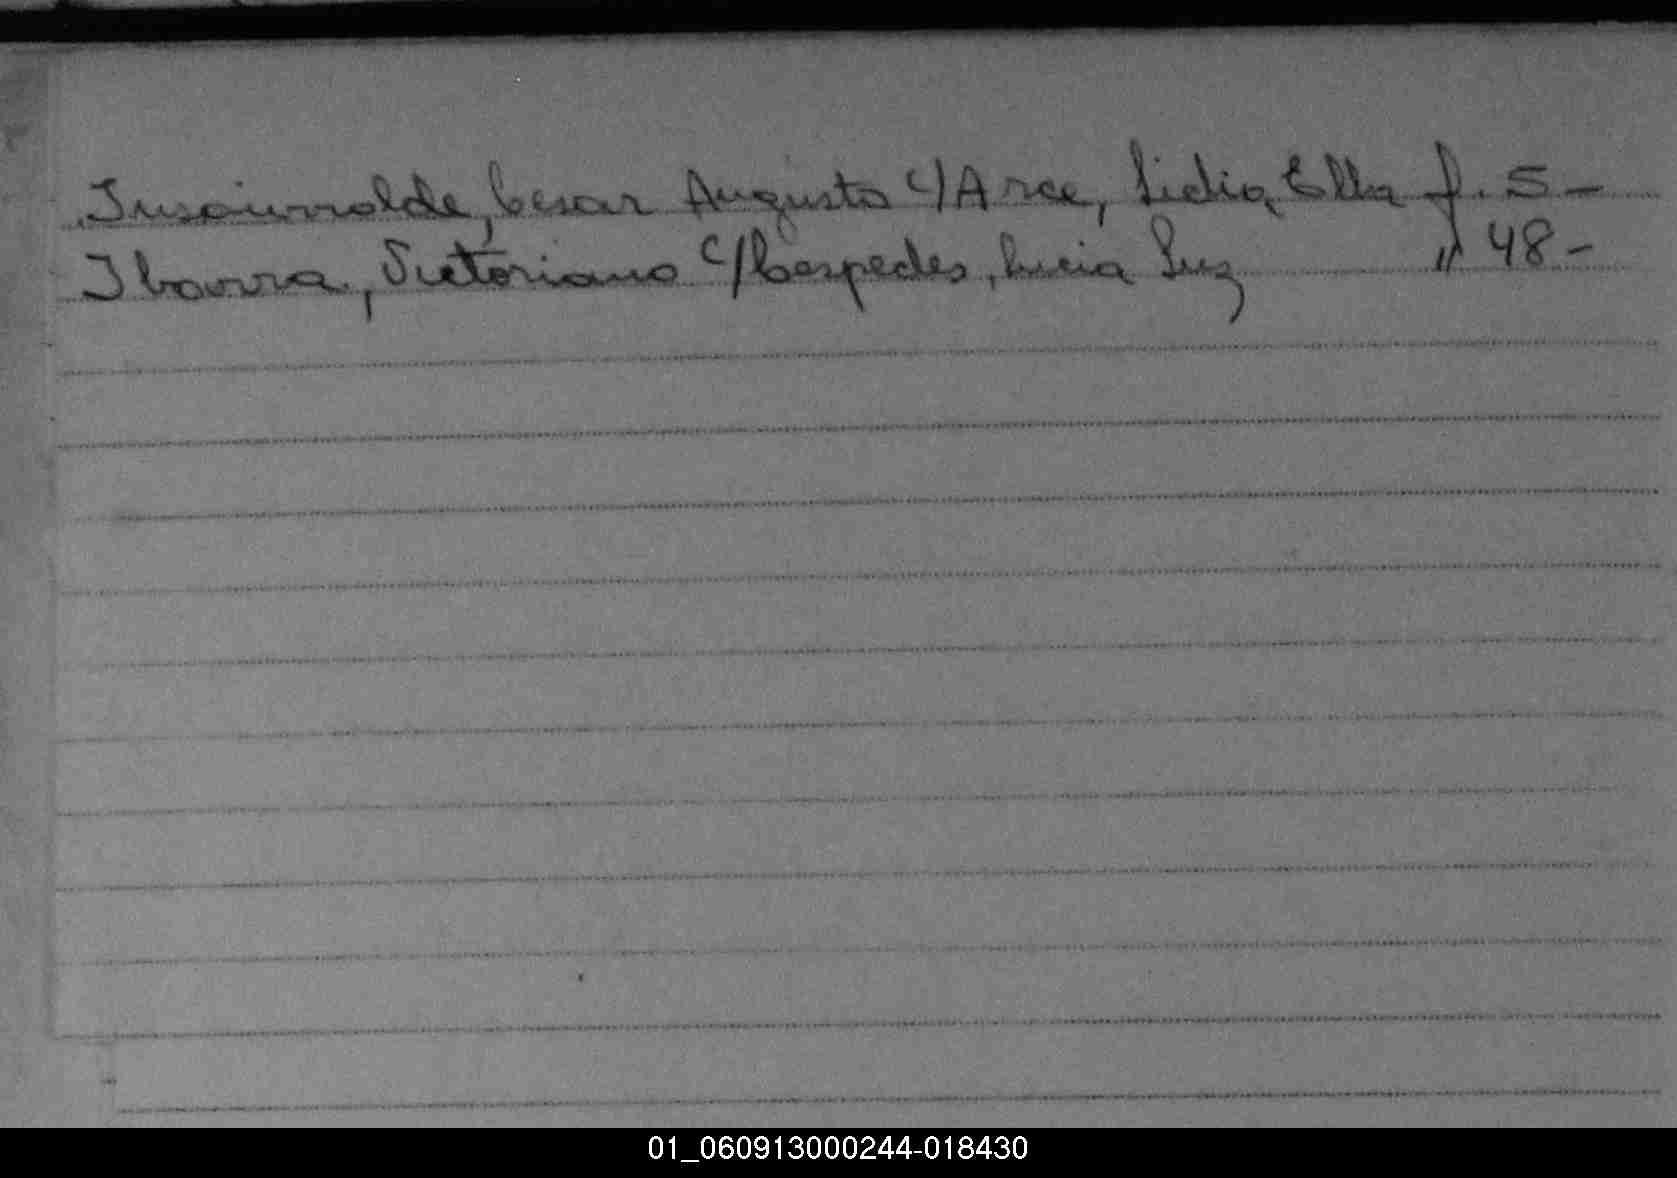 Insaurralde, Cesar Augusto c/ Arce, Lidia Elba f. 5 –
Ibarra, Victoriano c/ Cespedes, Lucia Luz " 48 –
01_060913000244-018430